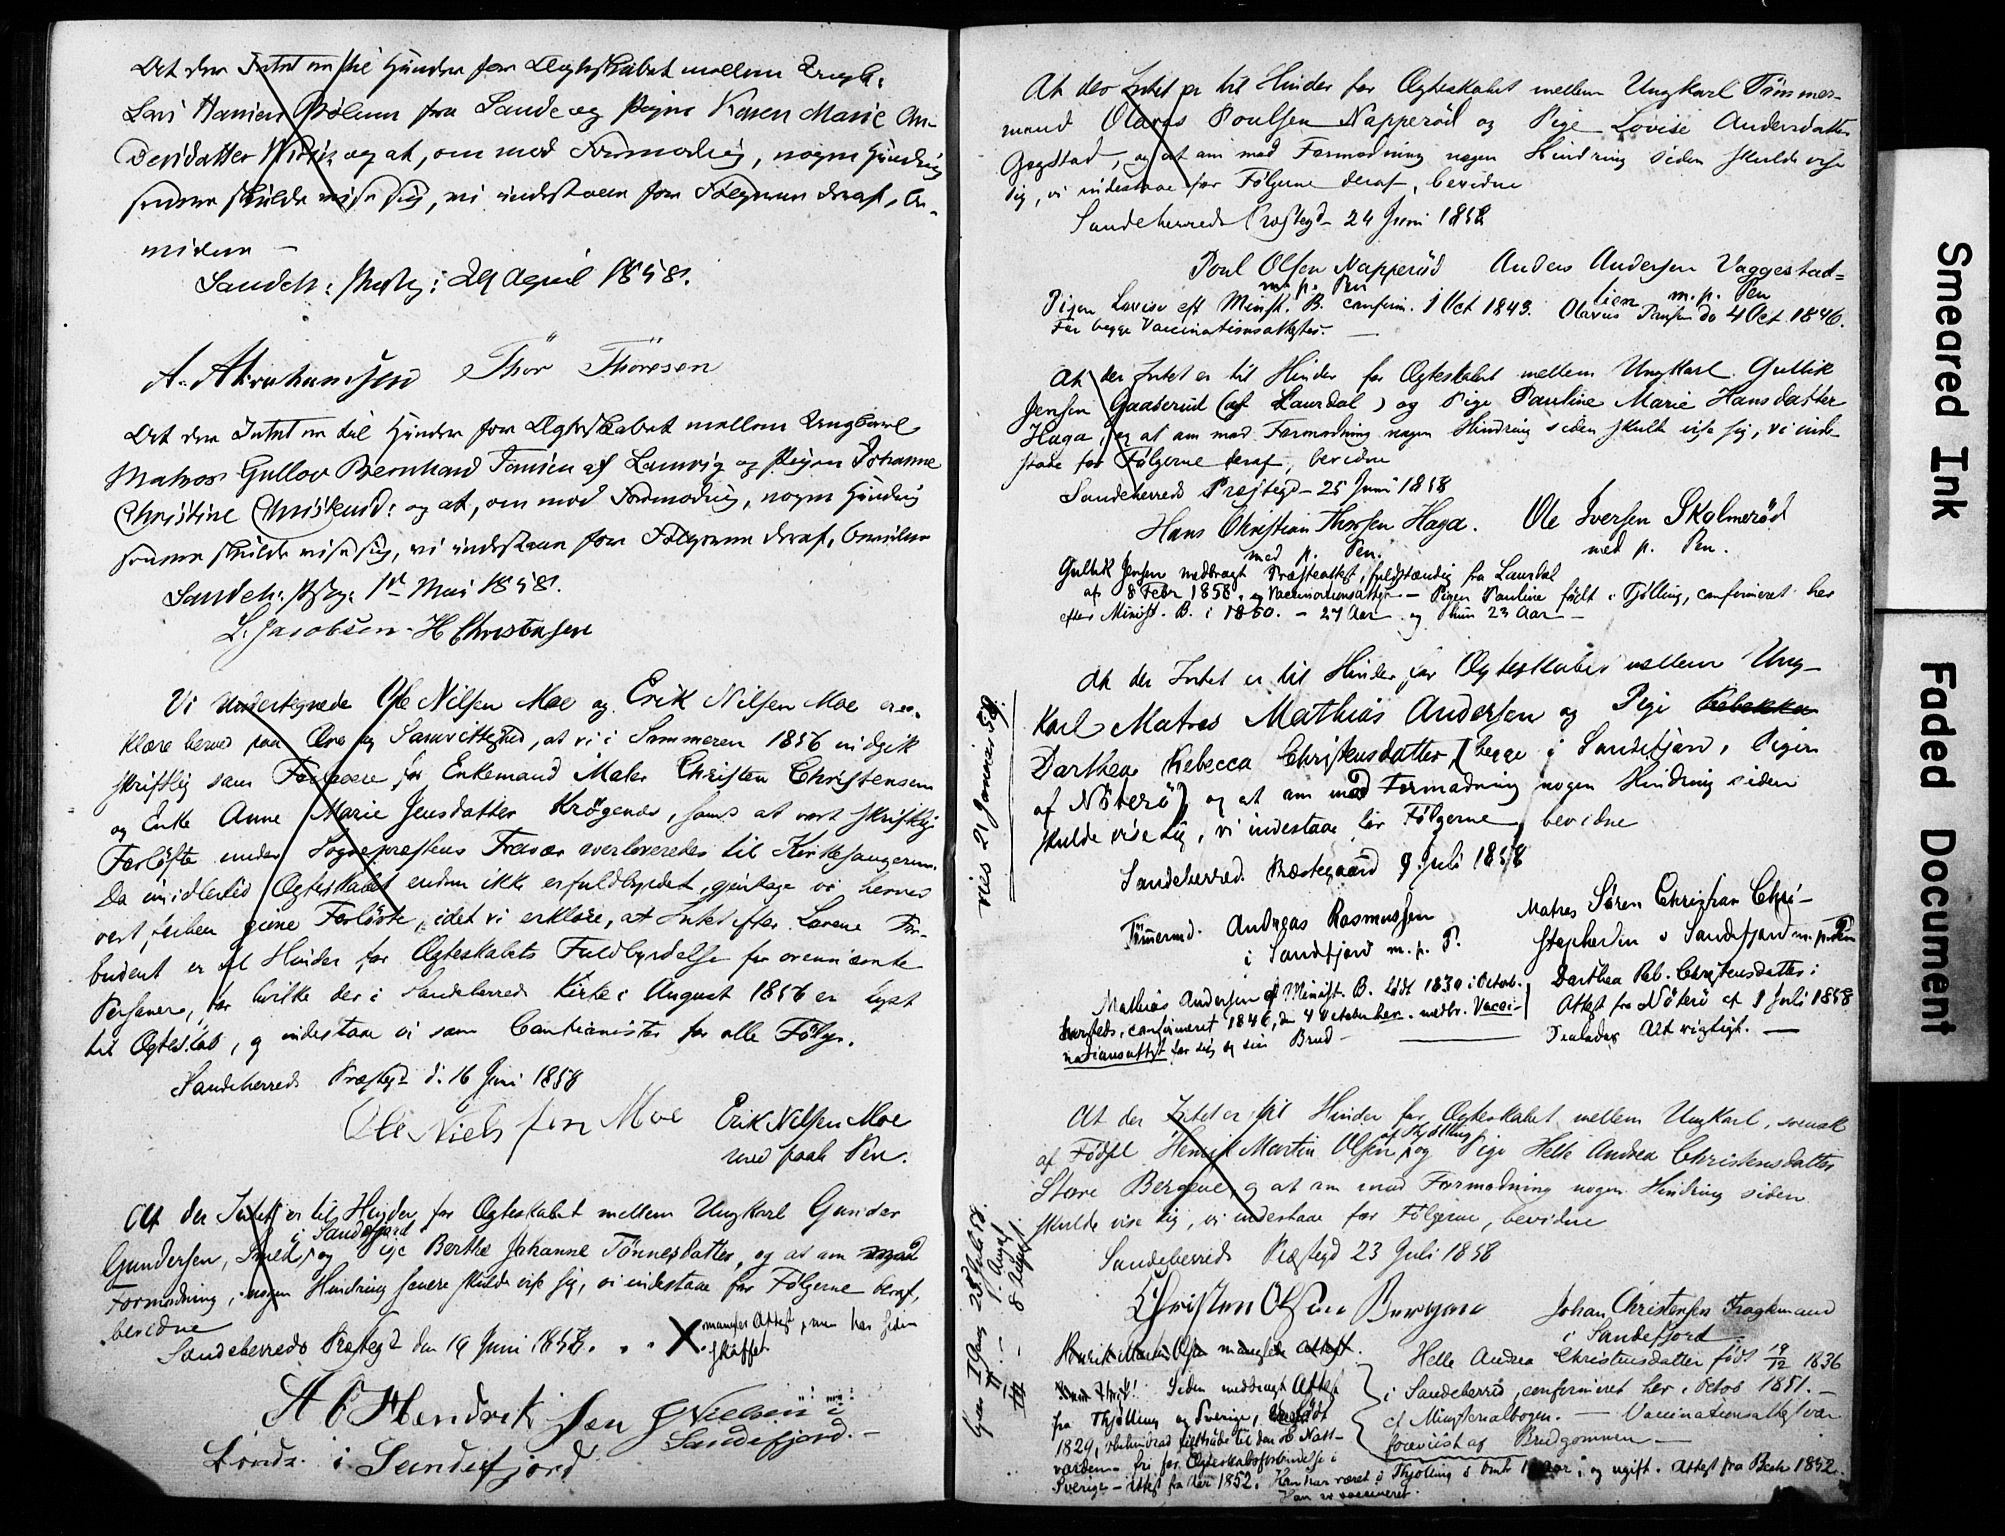 At der Intet er til Hinder for Ægteskabet mellem Ungk:
Lars Hansen fra Sande og Pigen Karen Marie An-
dersdatter og at, om mod Formodning, nogen Hindring
senere skulde vise sig, vi indestaae for Følgerne deraf, be-
vidne —
Sandeh: Præstg: 29 April 1858.
A. Abrahamsen Thor Thoresen
At der Intet er til Hinder for Ægteskabet mellem Ungkarl
Matros Gullov Bernhard Jansen af Laurvig og Pigen Johanne
Christine Christensd: og at, om mod Formodning, nogen Hindring
senere skulde vise sig, vi indestaae for Følgerne deraf, bevidne
Sandeh: Pstg: 1ste Mai 1858.
L. Jacobsen. H Christensen
Vi undertegnede Ole Nilsen Moe og Erik Nilsen Moe er-
klære herved paa Ære og Samvittighed, at vi i Sommeren 1856 indgik
skriftlig som Forlovere for Enkemand Maler Christen Christensen
og Enke Anne Marie Jensdatter Krøgenes, samt at vort skriftlige
Forløfte under Sognepræstens Fravær overleveredes til Kirkesangeren.
Da imidlertid Ægteskabet endnu ikke er fuldbyrdet, gjentage vi herved
vort givne Forløfte, idet vi erklære, at Intet efter Lovene For-
budent er til Hinder for Ægteskabets Fuldbyrdelse for ovennævnte
Personer, for hvilke der i Sandeherreds Kirke i August 1856 er lyst
til Ægteskab, og indestaae vi som Cautionister for alle Følger.
Sandeherreds Præstegd d. 16 Juni 1858
Ole Nielssen Moe Erik Nilsen Moe
med paah Pen.
At der Intet er til Hinder for Ægteskabet mellem Ungkarl Gunder
i Sandefjord
Gundersen, Smed, og Pige Berthe Johanne Tønnesdatter, og at om mod
Formodning, nogen Hindring senere skulde vise sig, vi indestaae for Følgerne deraf,
bevidne
Sandeherreds Præstegd den 19 Juni 1858. . . X mangler Attest, men har siden
skaffet.
A O Hendriksen J Nielsen i
Sandefjord. —
i Sandefjord
At der Intet er til Hinder for Ægteskabet mellem Ungkarl Tømmer-
mand Olavus Poulsen Napperød og Pige Lovise Andersdatter
Gogstad, og at om mod Formodning nogen Hindring siden skulde vise
sig, vi indestaae for Følgerne deraf, bevidne
Sandeherreds Præstegd 24 Juni 1858
Poul Olsen Napperød Anders Andersen Vaggestad-
m. p. Pen lien m. p. Pen
Pigen Lovise eft Minist. B. confirm. 1 Oct 1843. Olavus Paulsen do 4 Oct. 1846.
For begge Vaccinationsattester. —
At der Intet er til Hinder for Ægteskabet mellem Ungkarl Gullik
Jensen Gaaserud (af Laurdal) og Pige Pauline Marie Hansdatter
Haga, og at om mod Formodning nogen Hindring siden skulde vise sig, vi inde-
staae for Følgerne deraf, bevidne
Sandeherreds Præstegd 25 Juni 1858
Hans Christian Thorsen Haga. Ole Iversen Skolmerød
med p. Pen. med p. Pen.
Gullik Jensen medbragt Præsteattest, fuldstændig fra Laurdal
af 8 Febr 1858, og Vaccinationsattest — Pigen Pauline født i Tjølling, confirmeret her
efter Minist. B. i 1850. — 27 Aar og Hun 23 Aar —
viet 2 Januar 59.
At der Intet er til Hinder for Ægteskabet mellem Ung-
karl Matros Mathias Andersen og Pige Rebekka
Dorthea Rebecca Christensdatter, (begge i Sandefjord, Pigen
af Nøterø) og at om mod Formodning nogen Hindring siden
skulde vise sig, vi indestaae for Følgerne, bevidne
Sandeherred. Præstegaard 9 Juli 1858
Tømmermd. Andreas Rasmussen Matros Søren Christian Chri-
i Sandfjord m. p. P. stophersen i Sandefjord m. p. Pen
Mathias Andersen ef Minist. B. født 1830 i Octob. Dorthea Reb. Christensdatter i
confirmeret 1846, den 4 October her. medbr. Vacci- Attest fra Nøterø af 1 Juli 1858
nationsattest for sig og sin Brud — Alt rigtigt. —
At der Intet er til Hinder for Ægteskabet mellem Ungkarl, svensk
af Thjølling
af Fødsel Henrik Martin Olsen, og Pige Helle Andrea Christensdatter
Store Bergene, og at om mod Formodning nogen Hindring siden
skulde vise sig, vi indestaae for Følgerne, bevidne
Sandeherreds Præstegd 23 Juli 1858
I Gang 25 Juli 58.
II — 1 August
III — 8 August.
Christen Olsen Bergene Johan Christensen Fragtmand
i Sandefjord
Henrik Martin Olsen manglede Attest. Helle Andrea Christensdatter født 19/12 1836
Siden medbragt Attest i Sandeherred, confirmeret her i Octob 1851. —
fra Thjølling og Sverige, født ef Ministerialbogen. — Vaccinationsattest var
1829, tilstæde til den H. Natt- foreviist af Brudgommen —
verden — fri for Ægteskabsforbindelse i
Sverige — Attest fra Aar 1852. Han har været i Thjølling i omtr Aar, og ugift. Attest fra 1852.
Han er vaccineret.
Smeared Ink
Faded Document